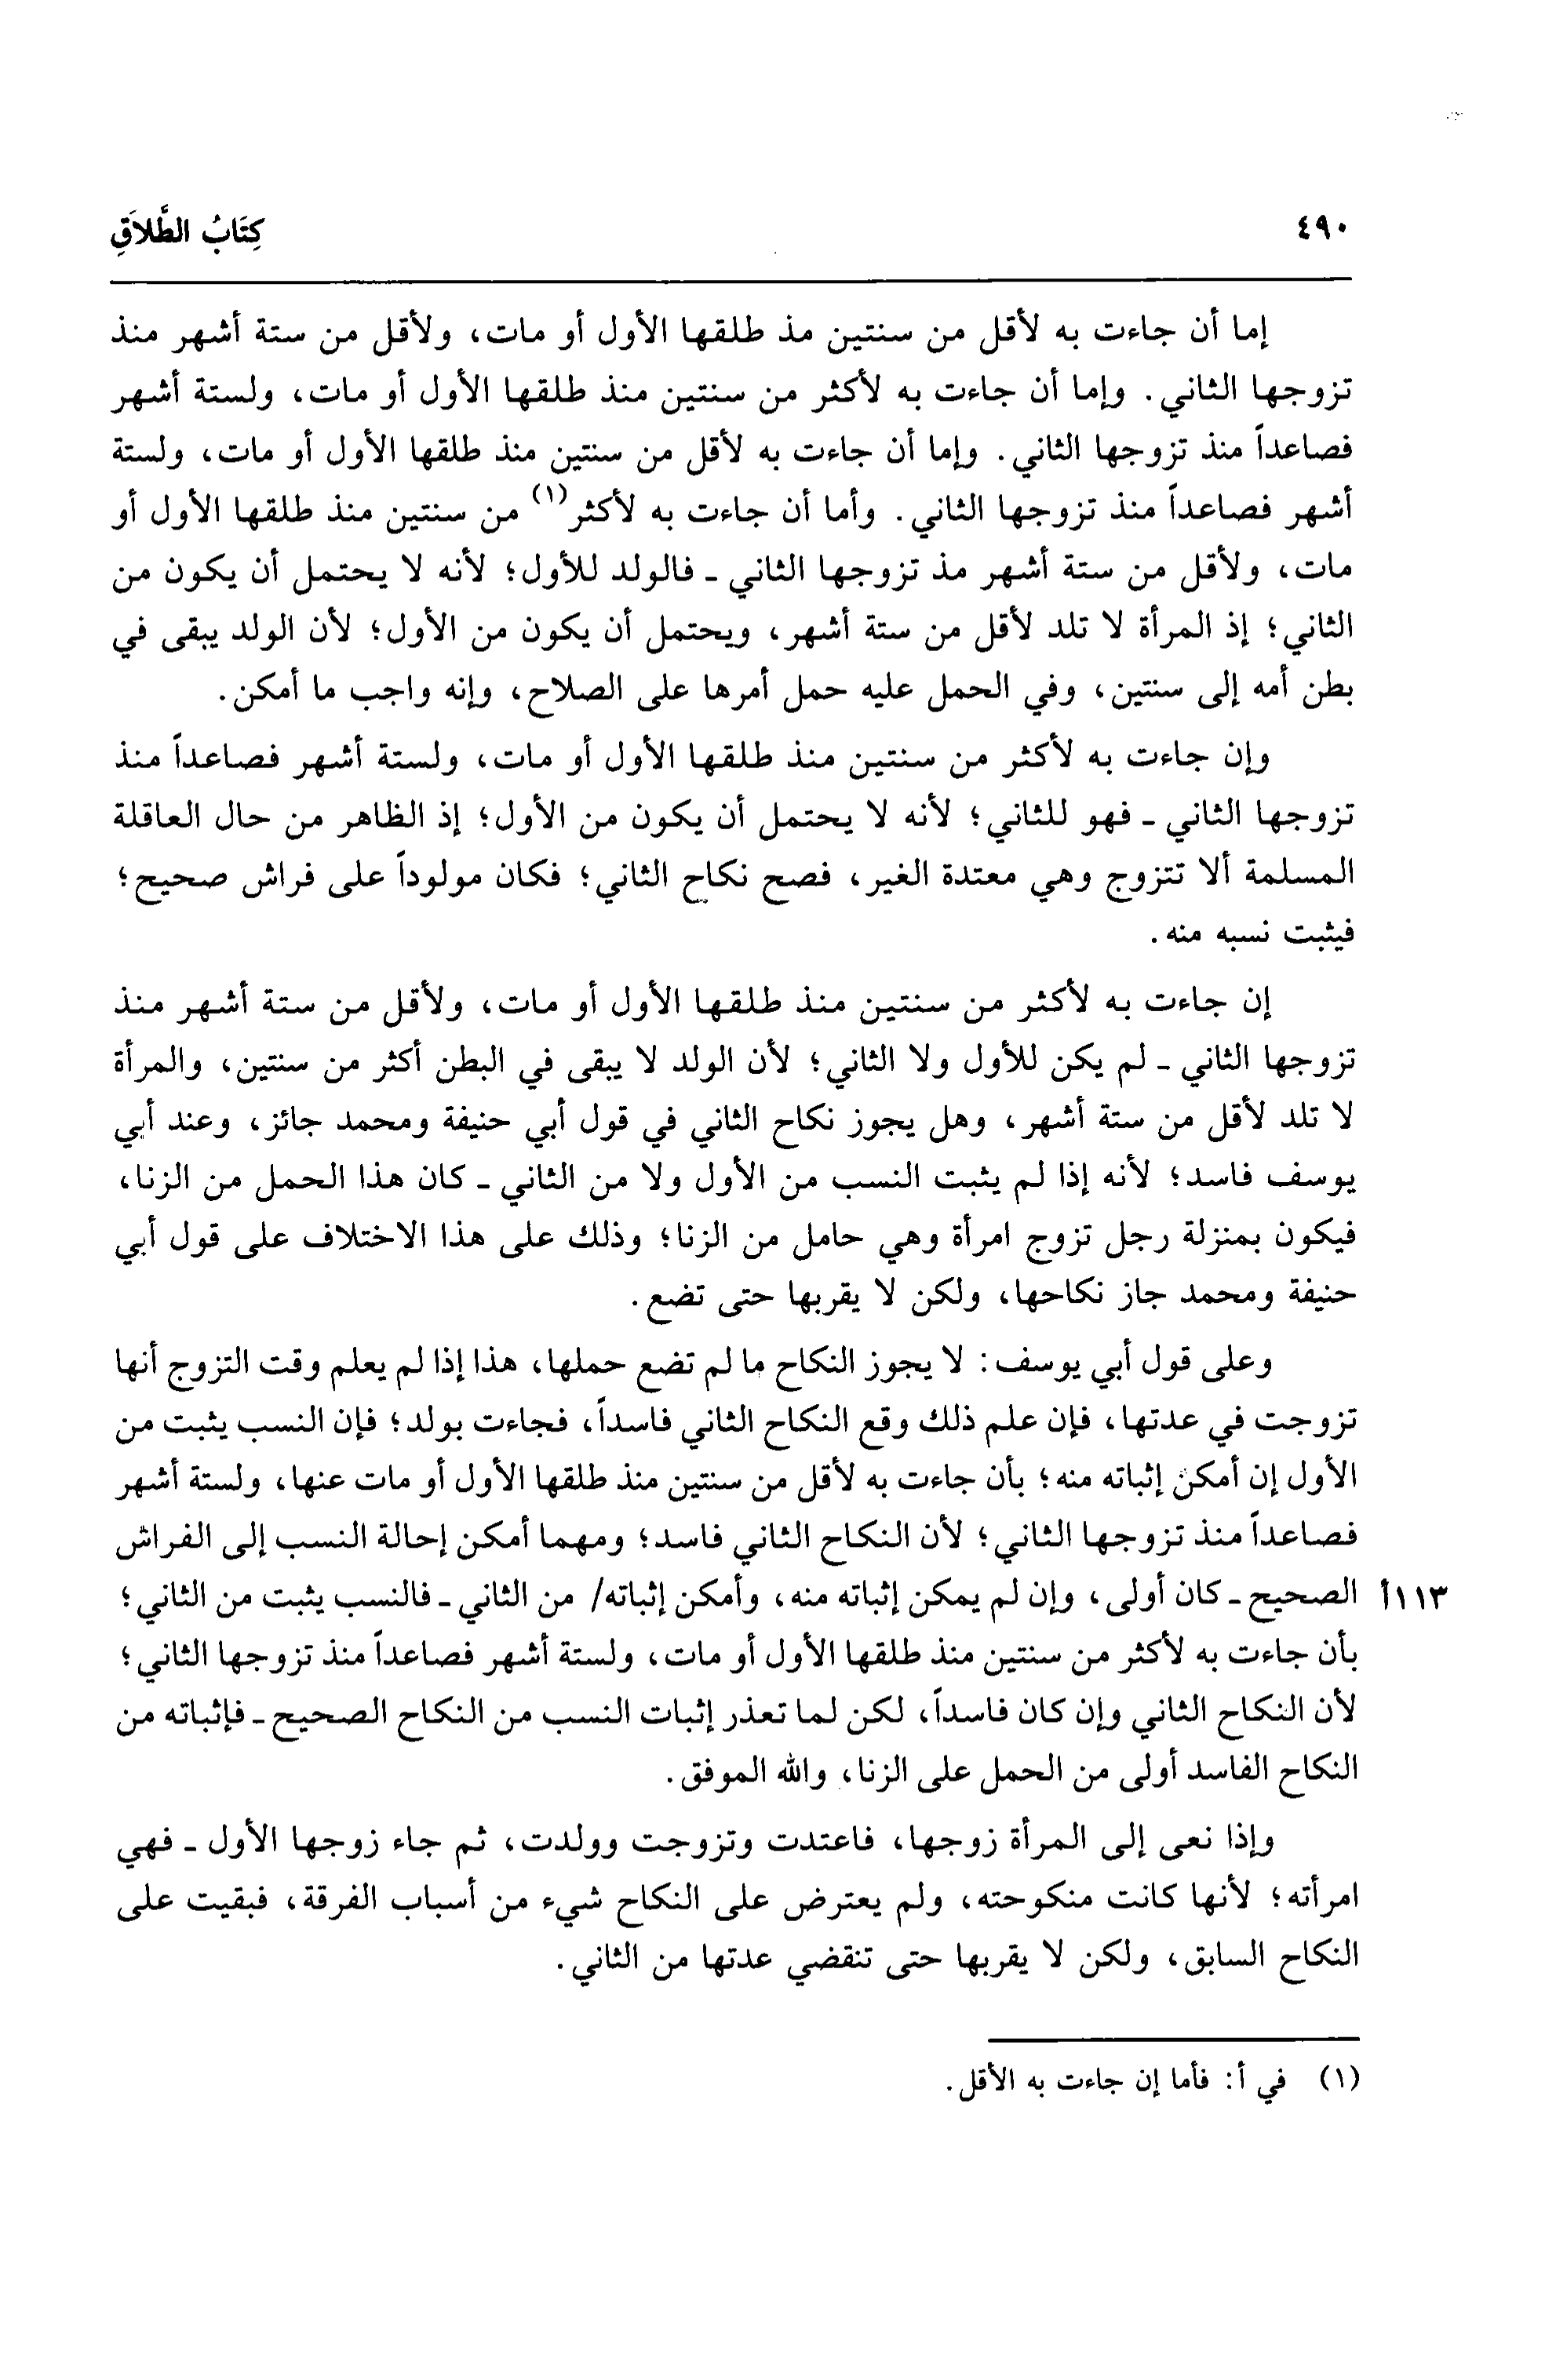 ٤٩٠ كِتَابُ الطَّلاَقِ
إما أن جاءت به لأقل من سنتين مذ طلقها الأول أو مات، ولأقل من ستة أشهر منذ
تزوجها الثاني. وإما أن جاءت به لأكثر من سنتين منذ طلقها الأول أو مات، ولستة أشهر
فصاعداً منذ تزوجها الثاني. وإما أن جاءت به لأقل من سنتين منذ طلقها الأول أو مات، ولستة
أشهر فصاعداً منذ تزوجها الثاني. وأما أن جاءت به لأكثر(١) من سنتين منذ طلقها الأول أو
مات، ولأقل من ستة أشهر مذ تزوجها الثاني - فالولد للأول؛ لأنه لا يحتمل أن يكون من
الثاني؛ إذ المرأة لا تلد لأقل من ستة أشهر، ويحتمل أن يكون من الأول؛ لأن الولد يبقى في
بطن أمه إلى سنتين، وفي الحمل عليه حمل أمرها على الصلاح، وإنه واجب ما أمكن.
وإن جاءت به لأكثر من سنتين منذ طلقها الأول أو مات، ولستة أشهر فصاعداً منذ
تزوجها الثاني - فهو للثاني؛ لأنه لا يحتمل أن يكون من الأول؛ إذ الظاهر من حال العاقلة
المسلمة ألا تتزوج وهي معتدة الغير، فصح نكاح الثاني؛ فكان مولوداً على فراش صحيح؛
فيثبت نسبه منه.
إن جاءت به لأكثر من سنتين منذ طلقها الأول أو مات، ولأقل من ستة أشهر منذ
تزوجها الثاني - لم يكن للأول ولا الثاني؛ لأن الولد لا يبقى في البطن أكثر من سنتين، والمرأة
لا تلد لأقل من ستة أشهر، وهل يجوز نكاح الثاني في قول أبي حنيفة ومحمد جائز، وعند أبي
يوسف فاسد؛ لأنه إذا لم يثبت النسب من الأول ولا من الثاني - كان هذا الحمل من الزنا،
فيكون بمنزلة رجل تزوج امرأة وهي حامل من الزنا؛ وذلك على هذا الاختلاف على قول أبي
حنيفة ومحمد جاز نكاحها، ولكن لا يقربها حتى تضع.
وعلى قول أبي يوسف: لا يجوز النكاح ما لم تضع حملها، هذا إذا لم يعلم وقت التزوج أنها
تزوجت في عدتها، فإن علم ذلك وقع النكاح الثاني فاسداً، فجاءت بولد؛ فإن النسب يثبت من
الأول إن أمكن إثباته منه؛ بأن جاءت به لأقل من سنتين منذ طلقها الأول أو مات عنها، ولستة أشهر
فصاعداً منذ تزوجها الثاني؛ لأن النكاح الثاني فاسد؛ ومهما أمكن إحالة النسب إلى الفراش
١١٣أ الصحيح - كان أولى، وإن لم يمكن إثباته منه، وأمكن إثباته/ من الثاني - فالنسب يثبت من الثاني؛
بأن جاءت به لأكثر من سنتين منذ طلقها الأول أو مات، ولستة أشهر فصاعداً منذ تزوجها الثاني؛
لأن النكاح الثاني وإن كان فاسداً، لكن لما تعذر إثبات النسب من النكاح الصحيح - فإثباته من
النكاح الفاسد أولى من الحمل على الزنا، والله الموفق.
وإذا نعى إلى المرأة زوجها، فاعتدت وتزوجت وولدت، ثم جاء زوجها الأول - فهي
امرأته؛ لأنها كانت منكوحته، ولم يعترض على النكاح شيء من أسباب الفرقة، فبقيت على
النكاح السابق، ولكن لا يقربها حتى تنقضي عدتها من الثاني.
(١) في أ: فأما إن جاءت به الأقل.